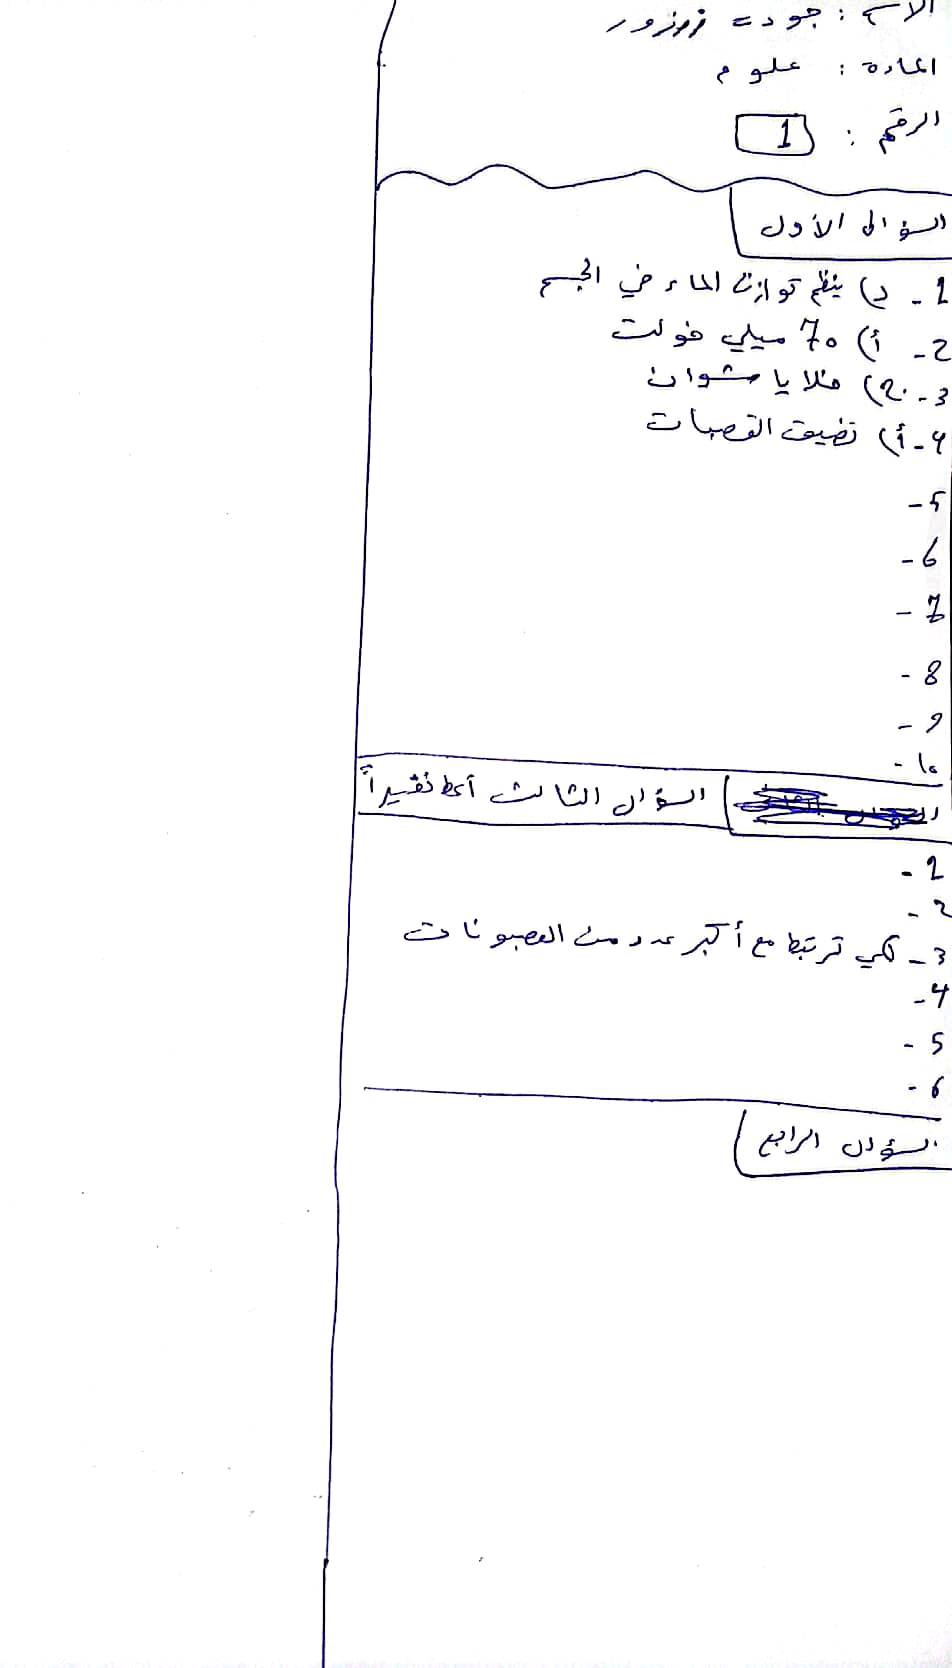 الاسم : جودت زرزور
المادة : علوم
الرقم : 1
السؤال الأول
1 - د) ينظم توازن الماء في الجسم
2 - أ) 70 ميلي فولت
3 - ج) خلايا شوان
4 - أ) تضيق القصبات
5 -
6 -
7 -
8 -
9 -
10 -
السؤال الثالث أعط تفسيراً
1 -
2 -
3 - لكي ترتبط مع أكبر عدد من العصبونات
4 -
5 -
6 -
السؤال الرابع